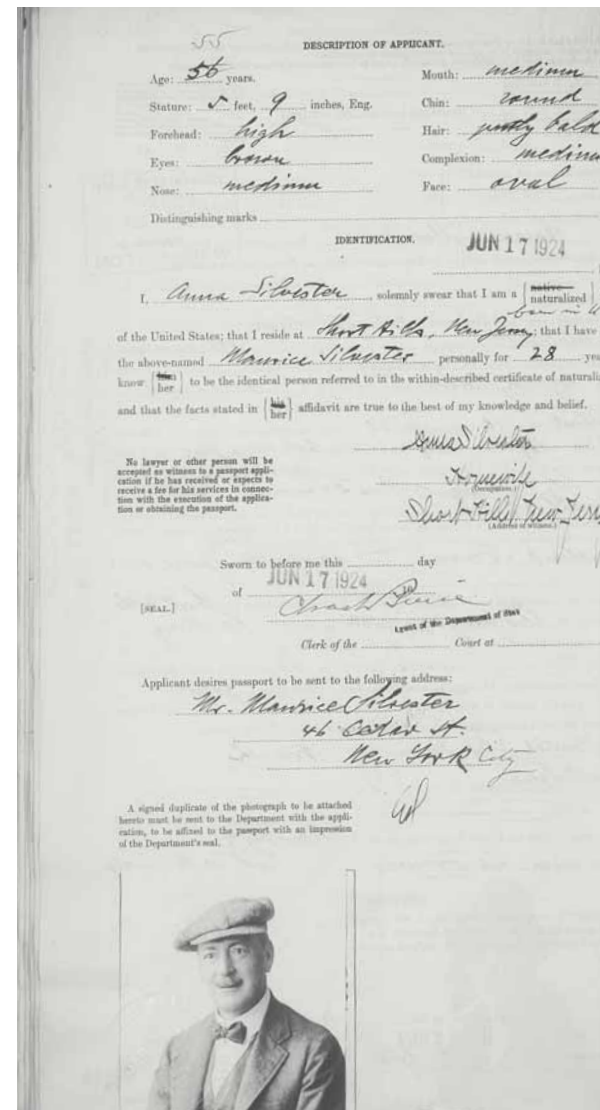 55
DESCRIPTION OF APPLICANT.
Age: 56 years. Mouth: medium
Stature: 5 feet, 9 inches, Eng. Chin: round
Forehead: high Hair: partly bald
Eyes: brown Complexion: medium
Nose: medium Face: oval
Distinguishing marks
IDENTIFICATION.
JUN 17 1924
I, Anna Silvester, solemnly swear that I am a {native naturalized}
born in U
of the United States; that I reside at Short Hills, New Jersey; that I have
the above-named Maurice Silvester personally for 28 yea
know {him her} to be the identical person referred to in the within-described certificate of naturaliz
and that the facts stated in {his her} affidavit are true to the best of my knowledge and belief.
Anna Silvester
Housewife
(Occupation.)
Short Hills New Jers
(Address of witness.)
No lawyer or other person will be
accepted as witness to a passport appli-
cation if he has received or expects to
receive a fee for his services in connec-
tion with the execution of the applica-
tion or obtaining the passport.
Sworn to before me this day
JUN 17 1924
of , 19
[SEAL.]
Agent of the Department of State
Clerk of the Court at
Applicant desires passport to be sent to the following address:
Mr. Maurice Silvester
46 Cedar St.
New York City
A signed duplicate of the photograph to be attached
hereto must be sent to the Department with the appli-
cation, to be affixed to the passport with an impression
of the Department's seal.